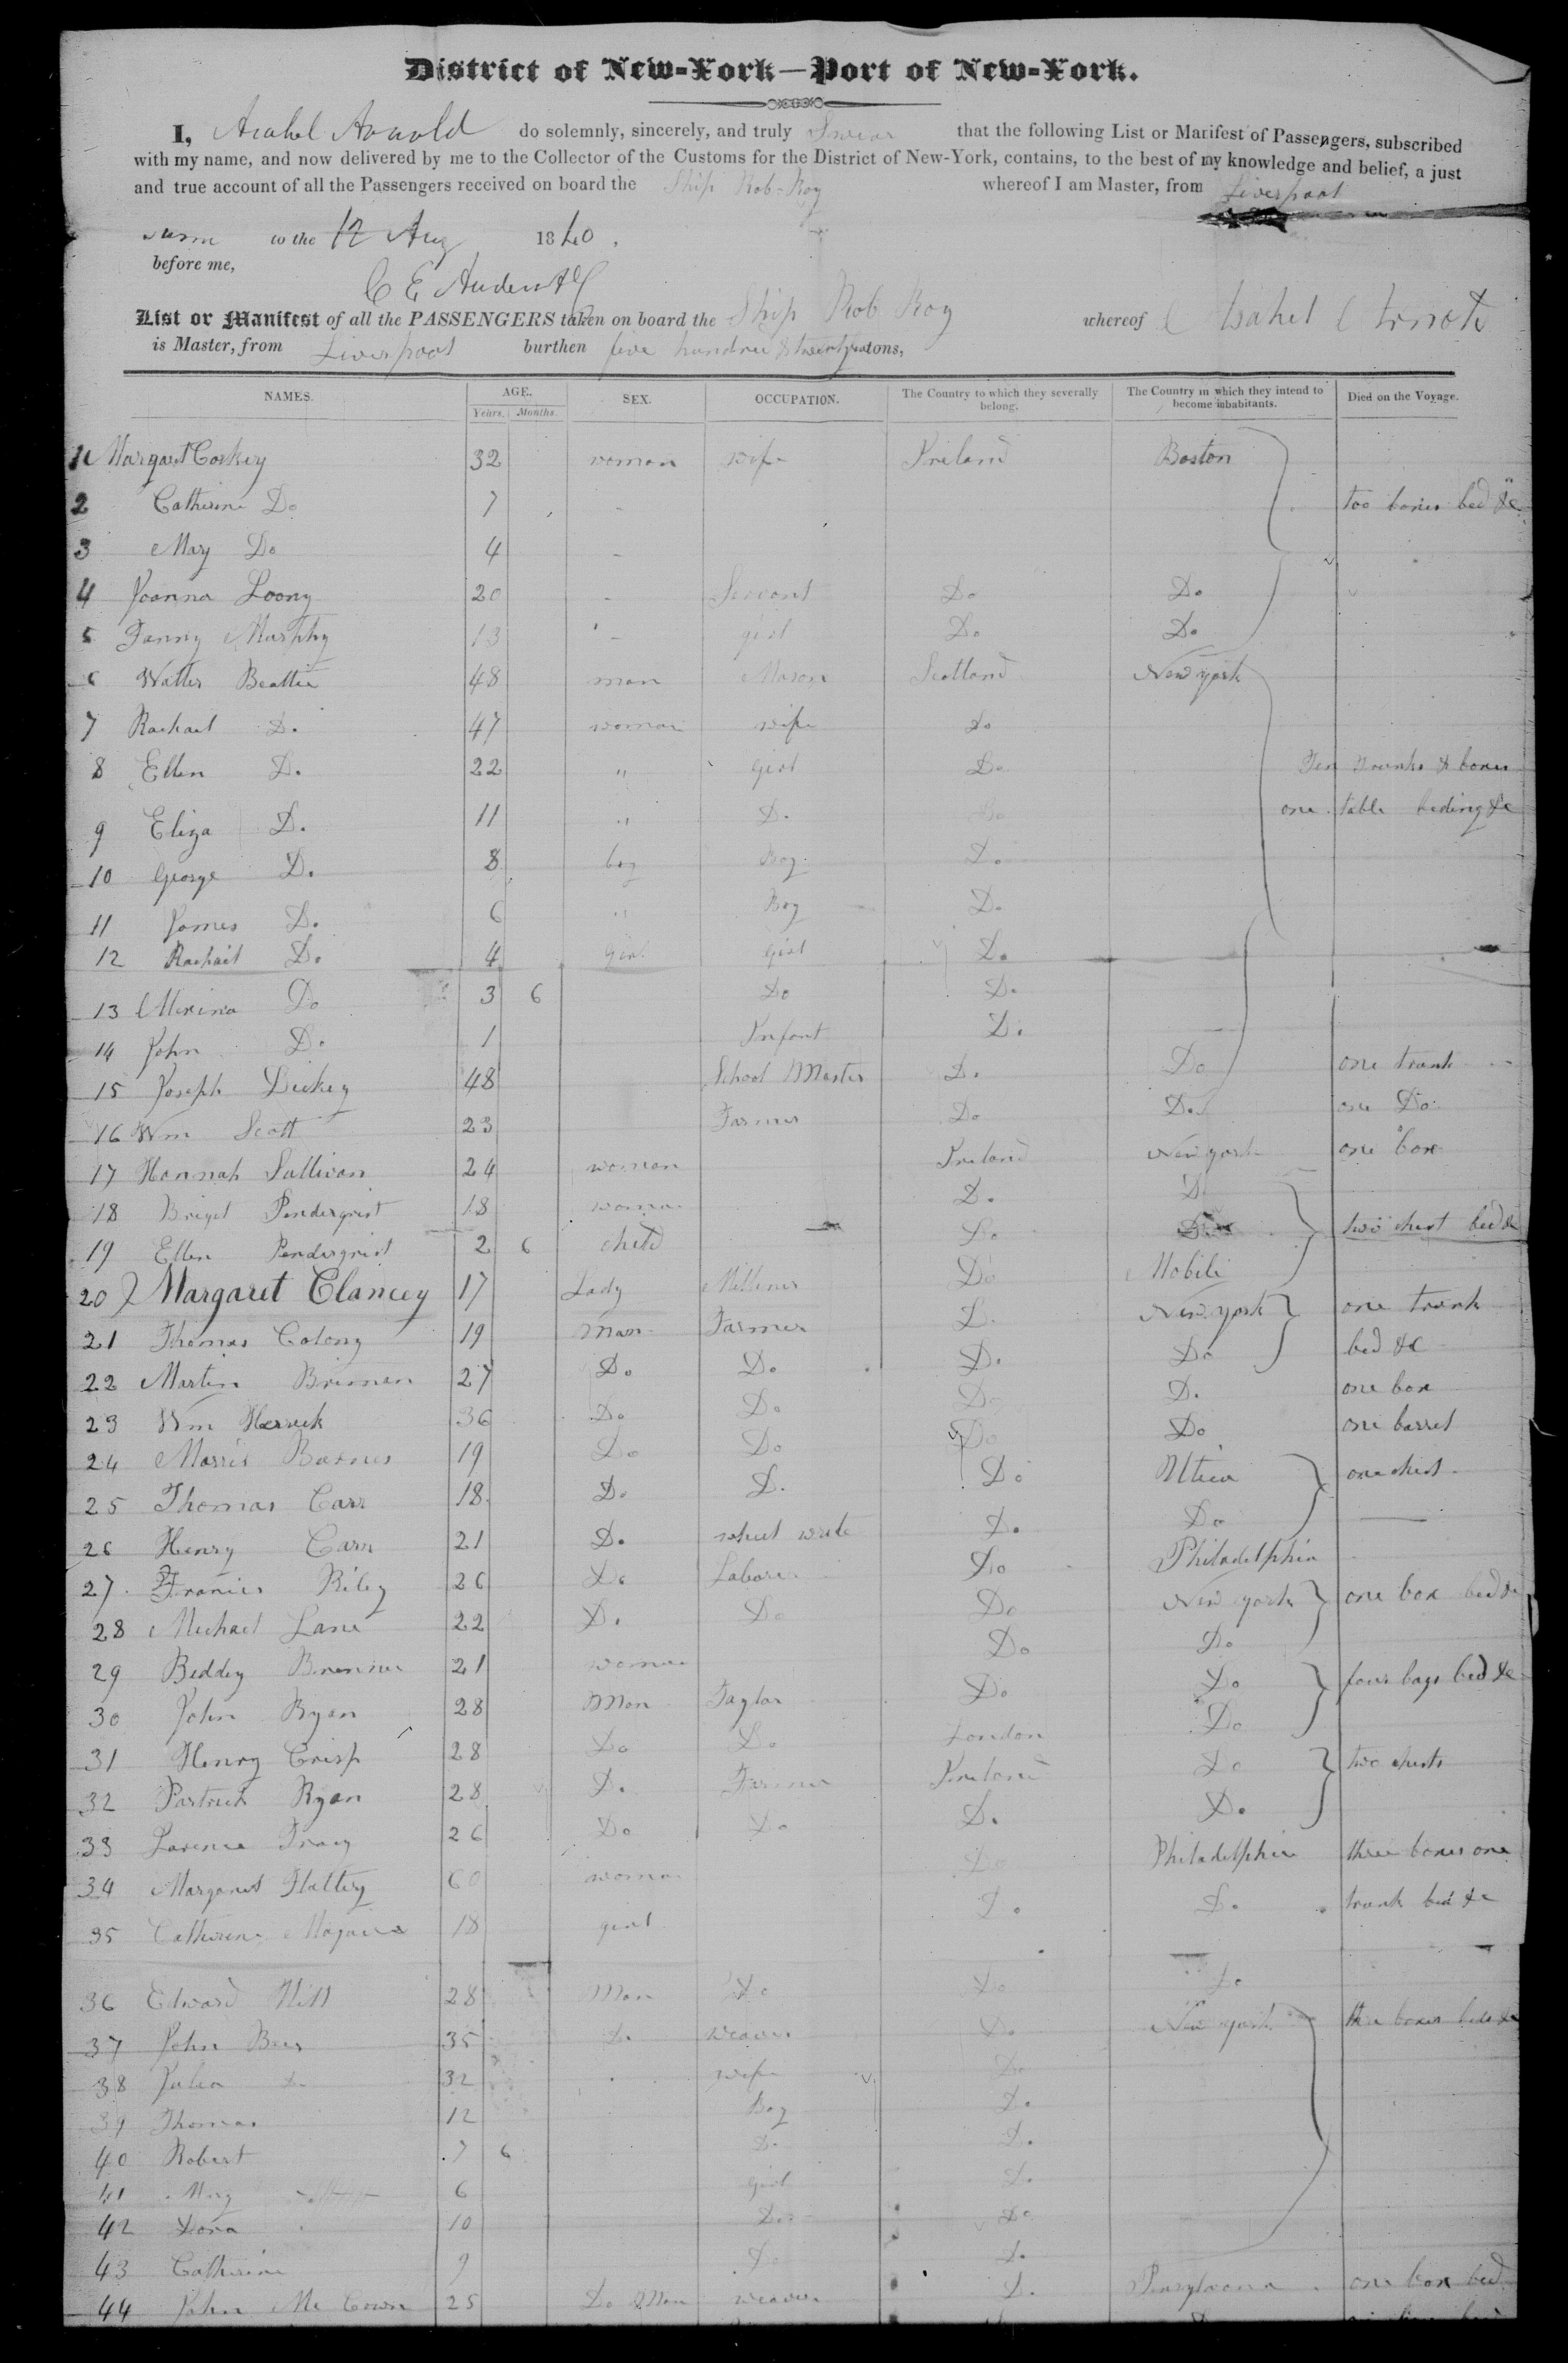 District of New-York—Port of New-York.
I, Asahel Arnold do solemnly, sincerely, and truly Swear that the following List or Manifest of Passengers, subscribed
with my name, and now delivered by me to the Collector of the Customs for the District of New-York, contains, to the best of my knowledge and belief, a just
and true account of all the Passengers received on board the Ship Rob-Roy whereof I am Master, from Liverpool
to the 12 Aug 1840.
before me,
C E
List or Manifest of all the PASSENGERS taken on board the Ship Rob Roy whereof
is Master, from Liverpool burthen five hundred & twenty tons,
NAMES. AGE. SEX. OCCUPATION. The Country to which they severally belong. The Country in which they intend to become inhabitants. Died on the Voyage.
Years. Months.
1 Margaret 32 woman wife Ireland Boston
2 Catherine Do 7 too boxes bed &c
3 Mary Do 4
4 Joanna Loony 20 Servant Do Do
5 Fanny Murphy 13 girl Do Do
6 Walter Beattie 48 man Mason Scotland New york
7 Rachael Do 47 woman wife Do
8 Ellen Do 22 " girl Do Ten trunks & boxes
9 Eliza Do 11 " Do Do one table beding &c
10 George Do 8 boy Boy Do
11 James Do 6 " Boy Do
12 Rachail Do 4 girl girl Do
13 Do 3 6 Do Do
14 John Do 1 Infant Do
15 Joseph Dickey 48 School Master Do Do one trunk
16 Wm Scott 23 Farmer Do Do one Do
17 Hannah Sullivan 24 woman Ireland New york one box
18 Briget Pendergrist 18 woman Do Do
19 Ellen Pendergrist 2 6 child Do Do two chest bed &c
20 Margaret Clancey 17 Lady Milliner Do Mobile
21 Thomas Colony 19 man Farmer Do New york one trunk
22 Martin Brinnan 27 Do Do Do Do bed &c
23 Wm Herrick 36 Do Do Do Do one box
24 Morris Barnes 19 Do Do Do Do one barrel
25 Thomas Carr 18 Do Do Do Utica one chest
26 Henry Carr 21 Do wheel write Do Do
27 Francis Riley 26 Do Laborer Do Philadelphia
28 Michael Lane 22 Do Do Do New york one box bed &c
29 Beddey Brenner 21 woman Do Do
30 John Ryan 28 Man Taylor Do Do four bags bed &c
31 Henry Crisp 28 Do Do London Do
32 Partrick Ryan 28 Do Farmer Ireland Do two chests
33 Larence Tracy 26 Do Do Do Do
34 Margaret Flattery 60 woman Do Philadelphia three boxes one
35 Catherine 18 girl Do Do trunk bed &c
36 Edward Hill 28 Man Do Do Do
37 John 35 Do weaver Do New york three boxes beds &c
38 Julia Do 32 wife Do
39 Thomas 12 Boy Do
40 Robert 7 6 Do Do
41 Mary 6 girl Do
42 Dora 10 Do Do
43 Catherine 9 Do Do
44 John Mc Cown 25 Do Man weaver Do Pensylvania one box bed